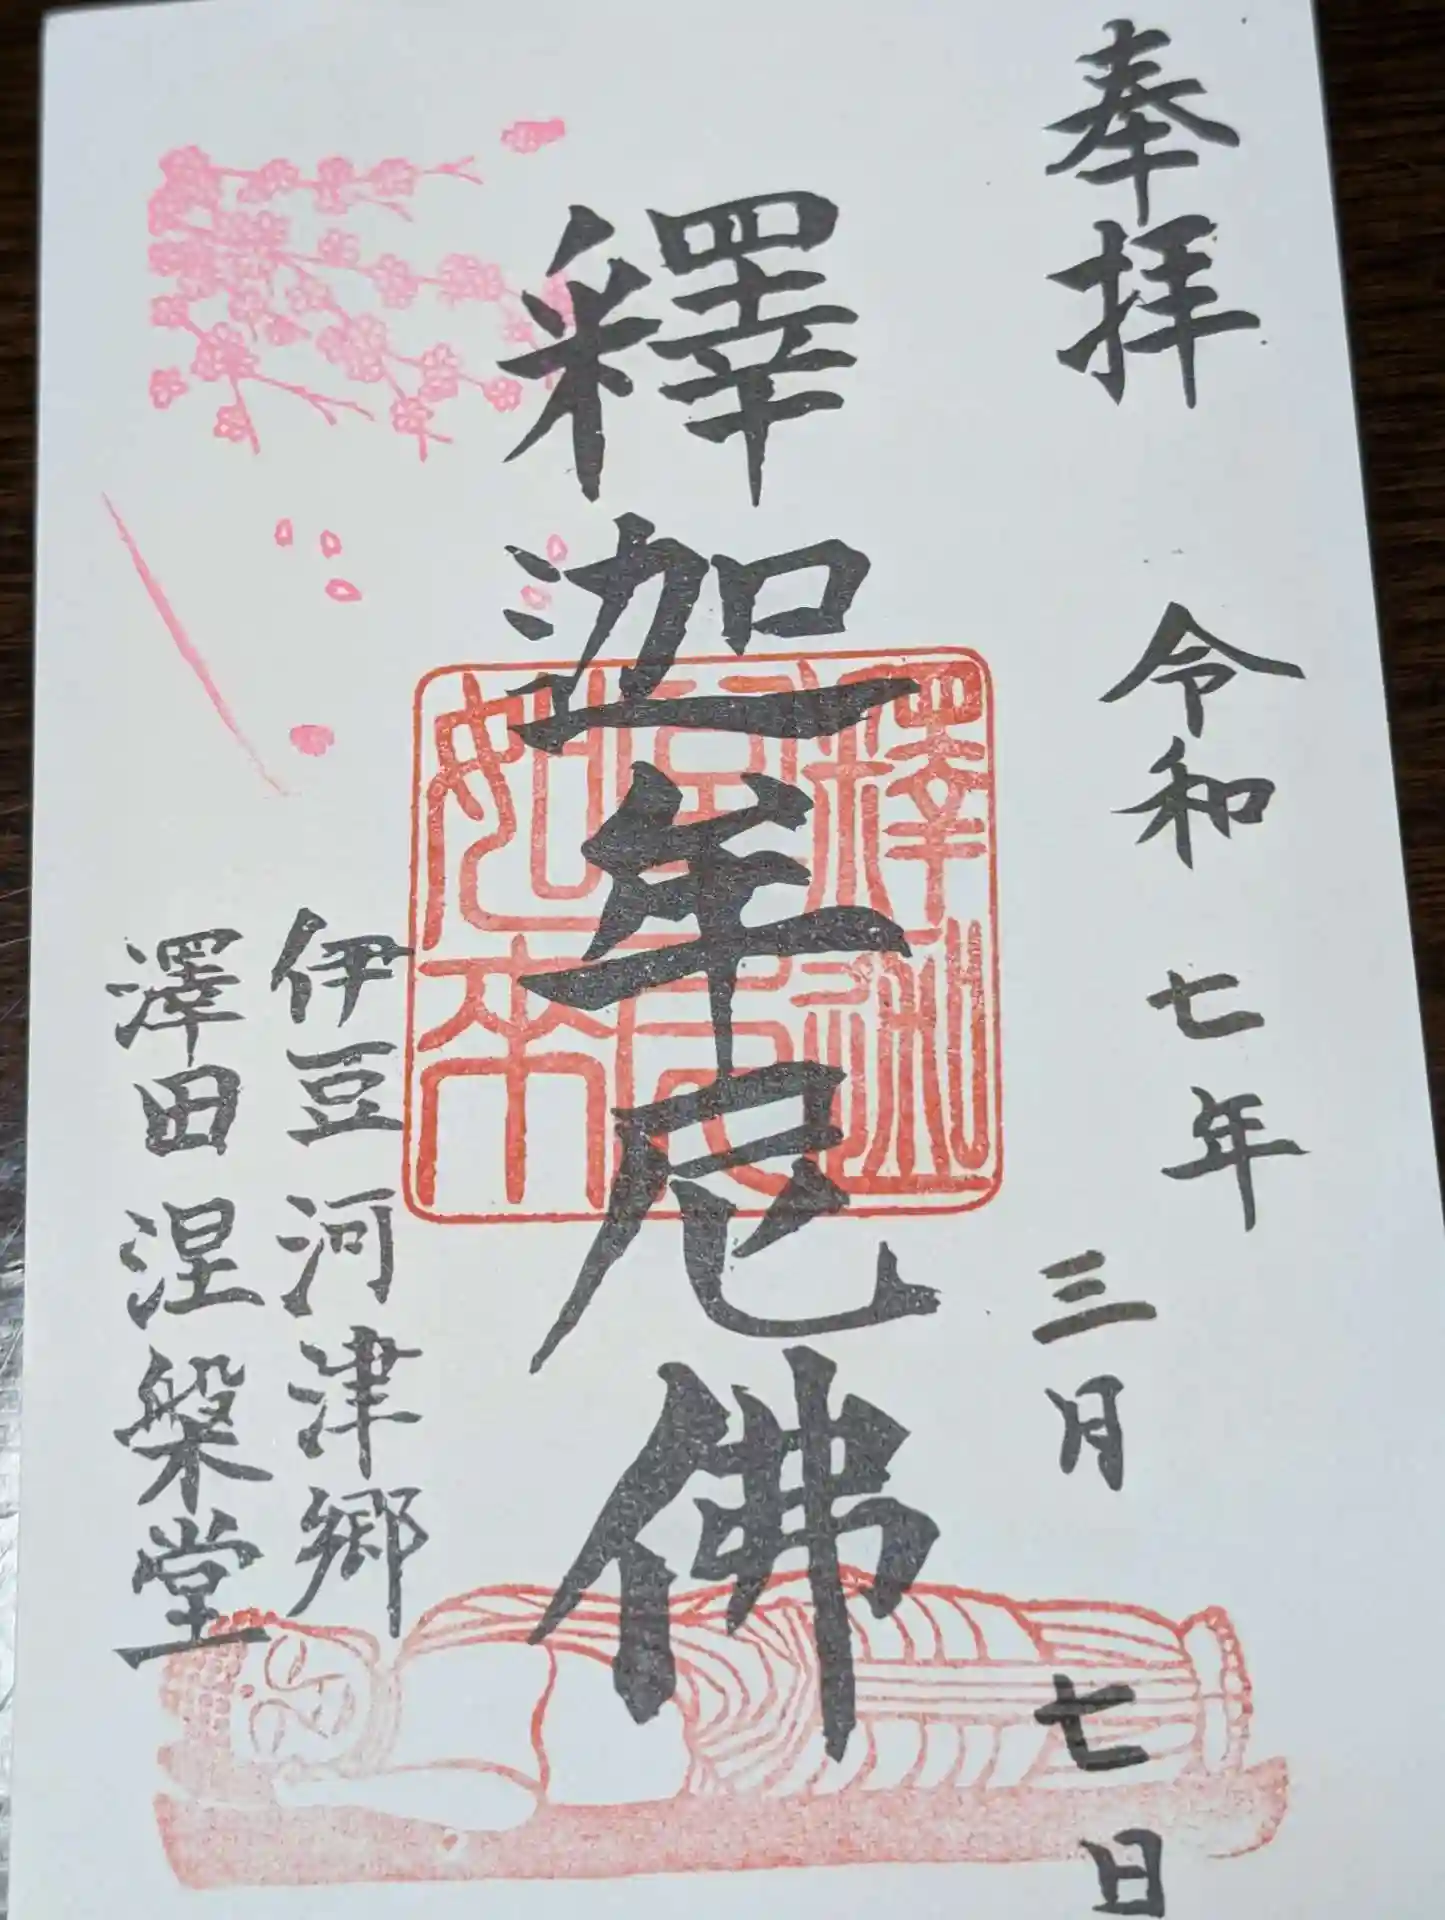 奉拝 令和七年三月七日
釋迦牟尼佛
釋迦牟尼如来
伊豆河津郷
澤田涅槃堂